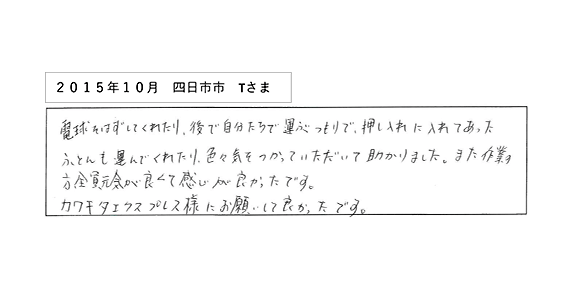 2015年10月　四日市市　Tさま
電球をはずしてくれたり、後で自分たちで運ぶつもりで、押し入れに入れてあった
ふとんも運んでくれたり、色々気をつかっていただいて助かりました。また作業の
方全員元気が良くて感じが良かったです。
カワキタエクスプレス様にお願いして良かったです。